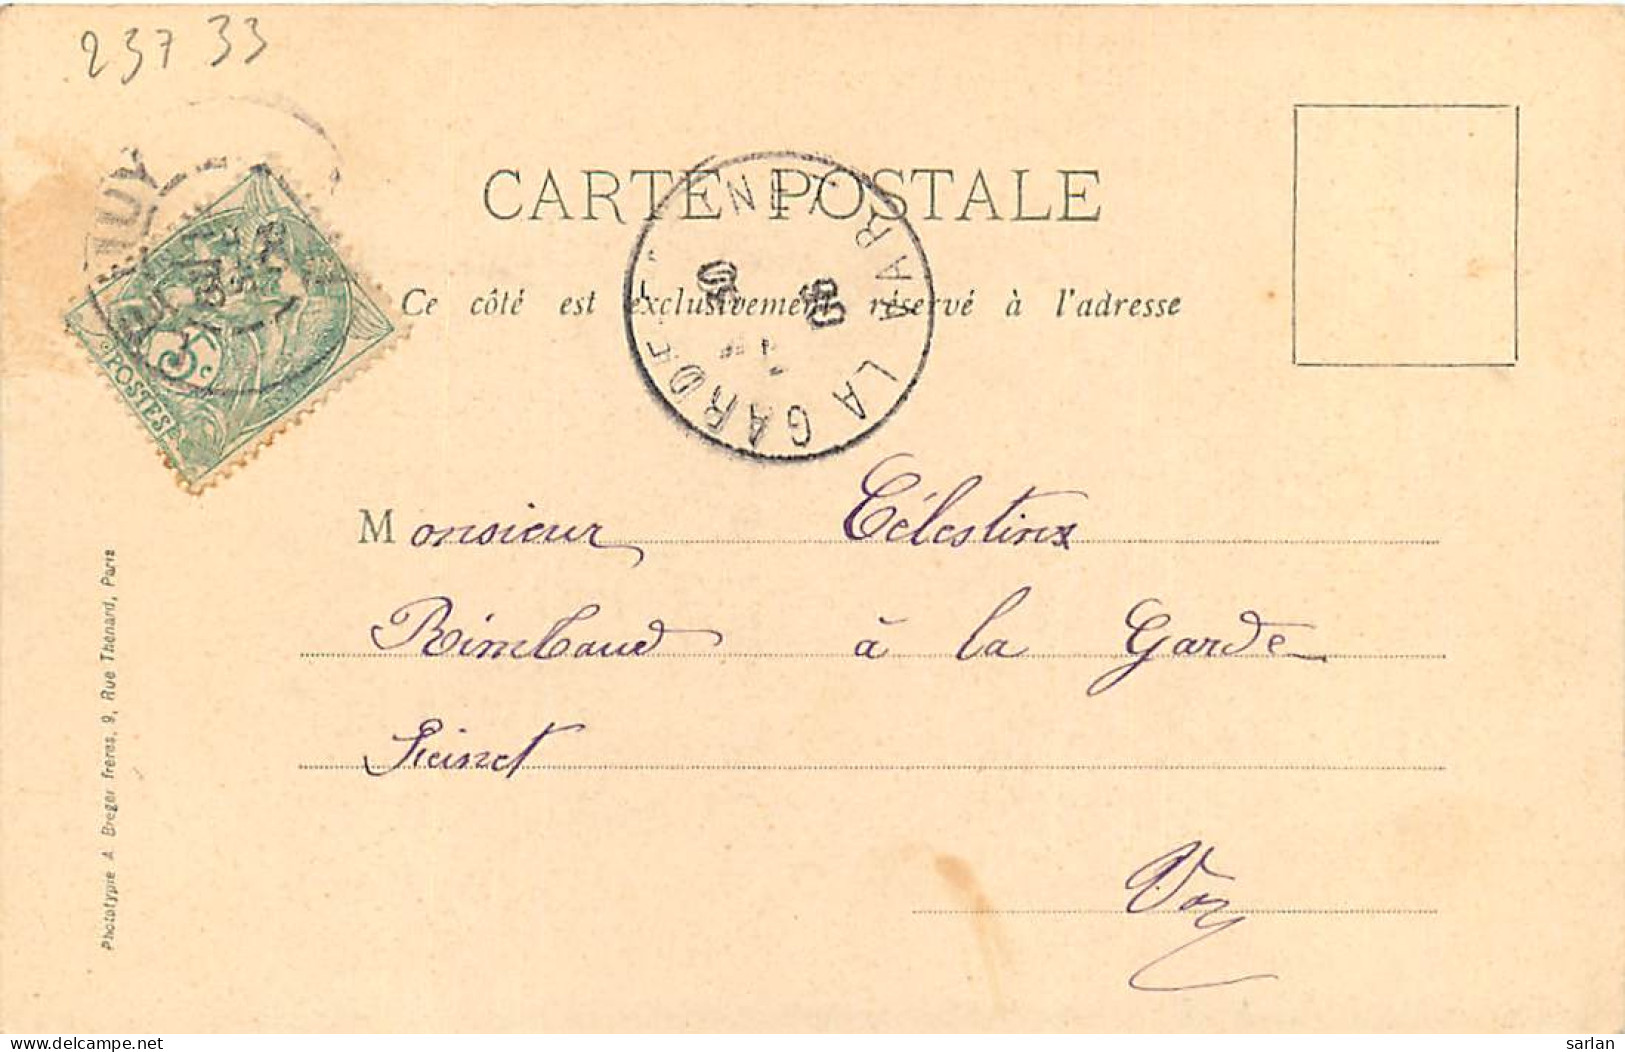 237 33
CARTE POSTALE
Ce côté est exclusivement réservé à l'adresse
5c
POSTES
LA GARDE
NET
VAR
30
05
Monsieur Célestin
Rimbaud à la Garde
Freinet
Var
Phototypie A. Breger frères, 9, Rue Thénard, Paris
delcampe.net
sarlan